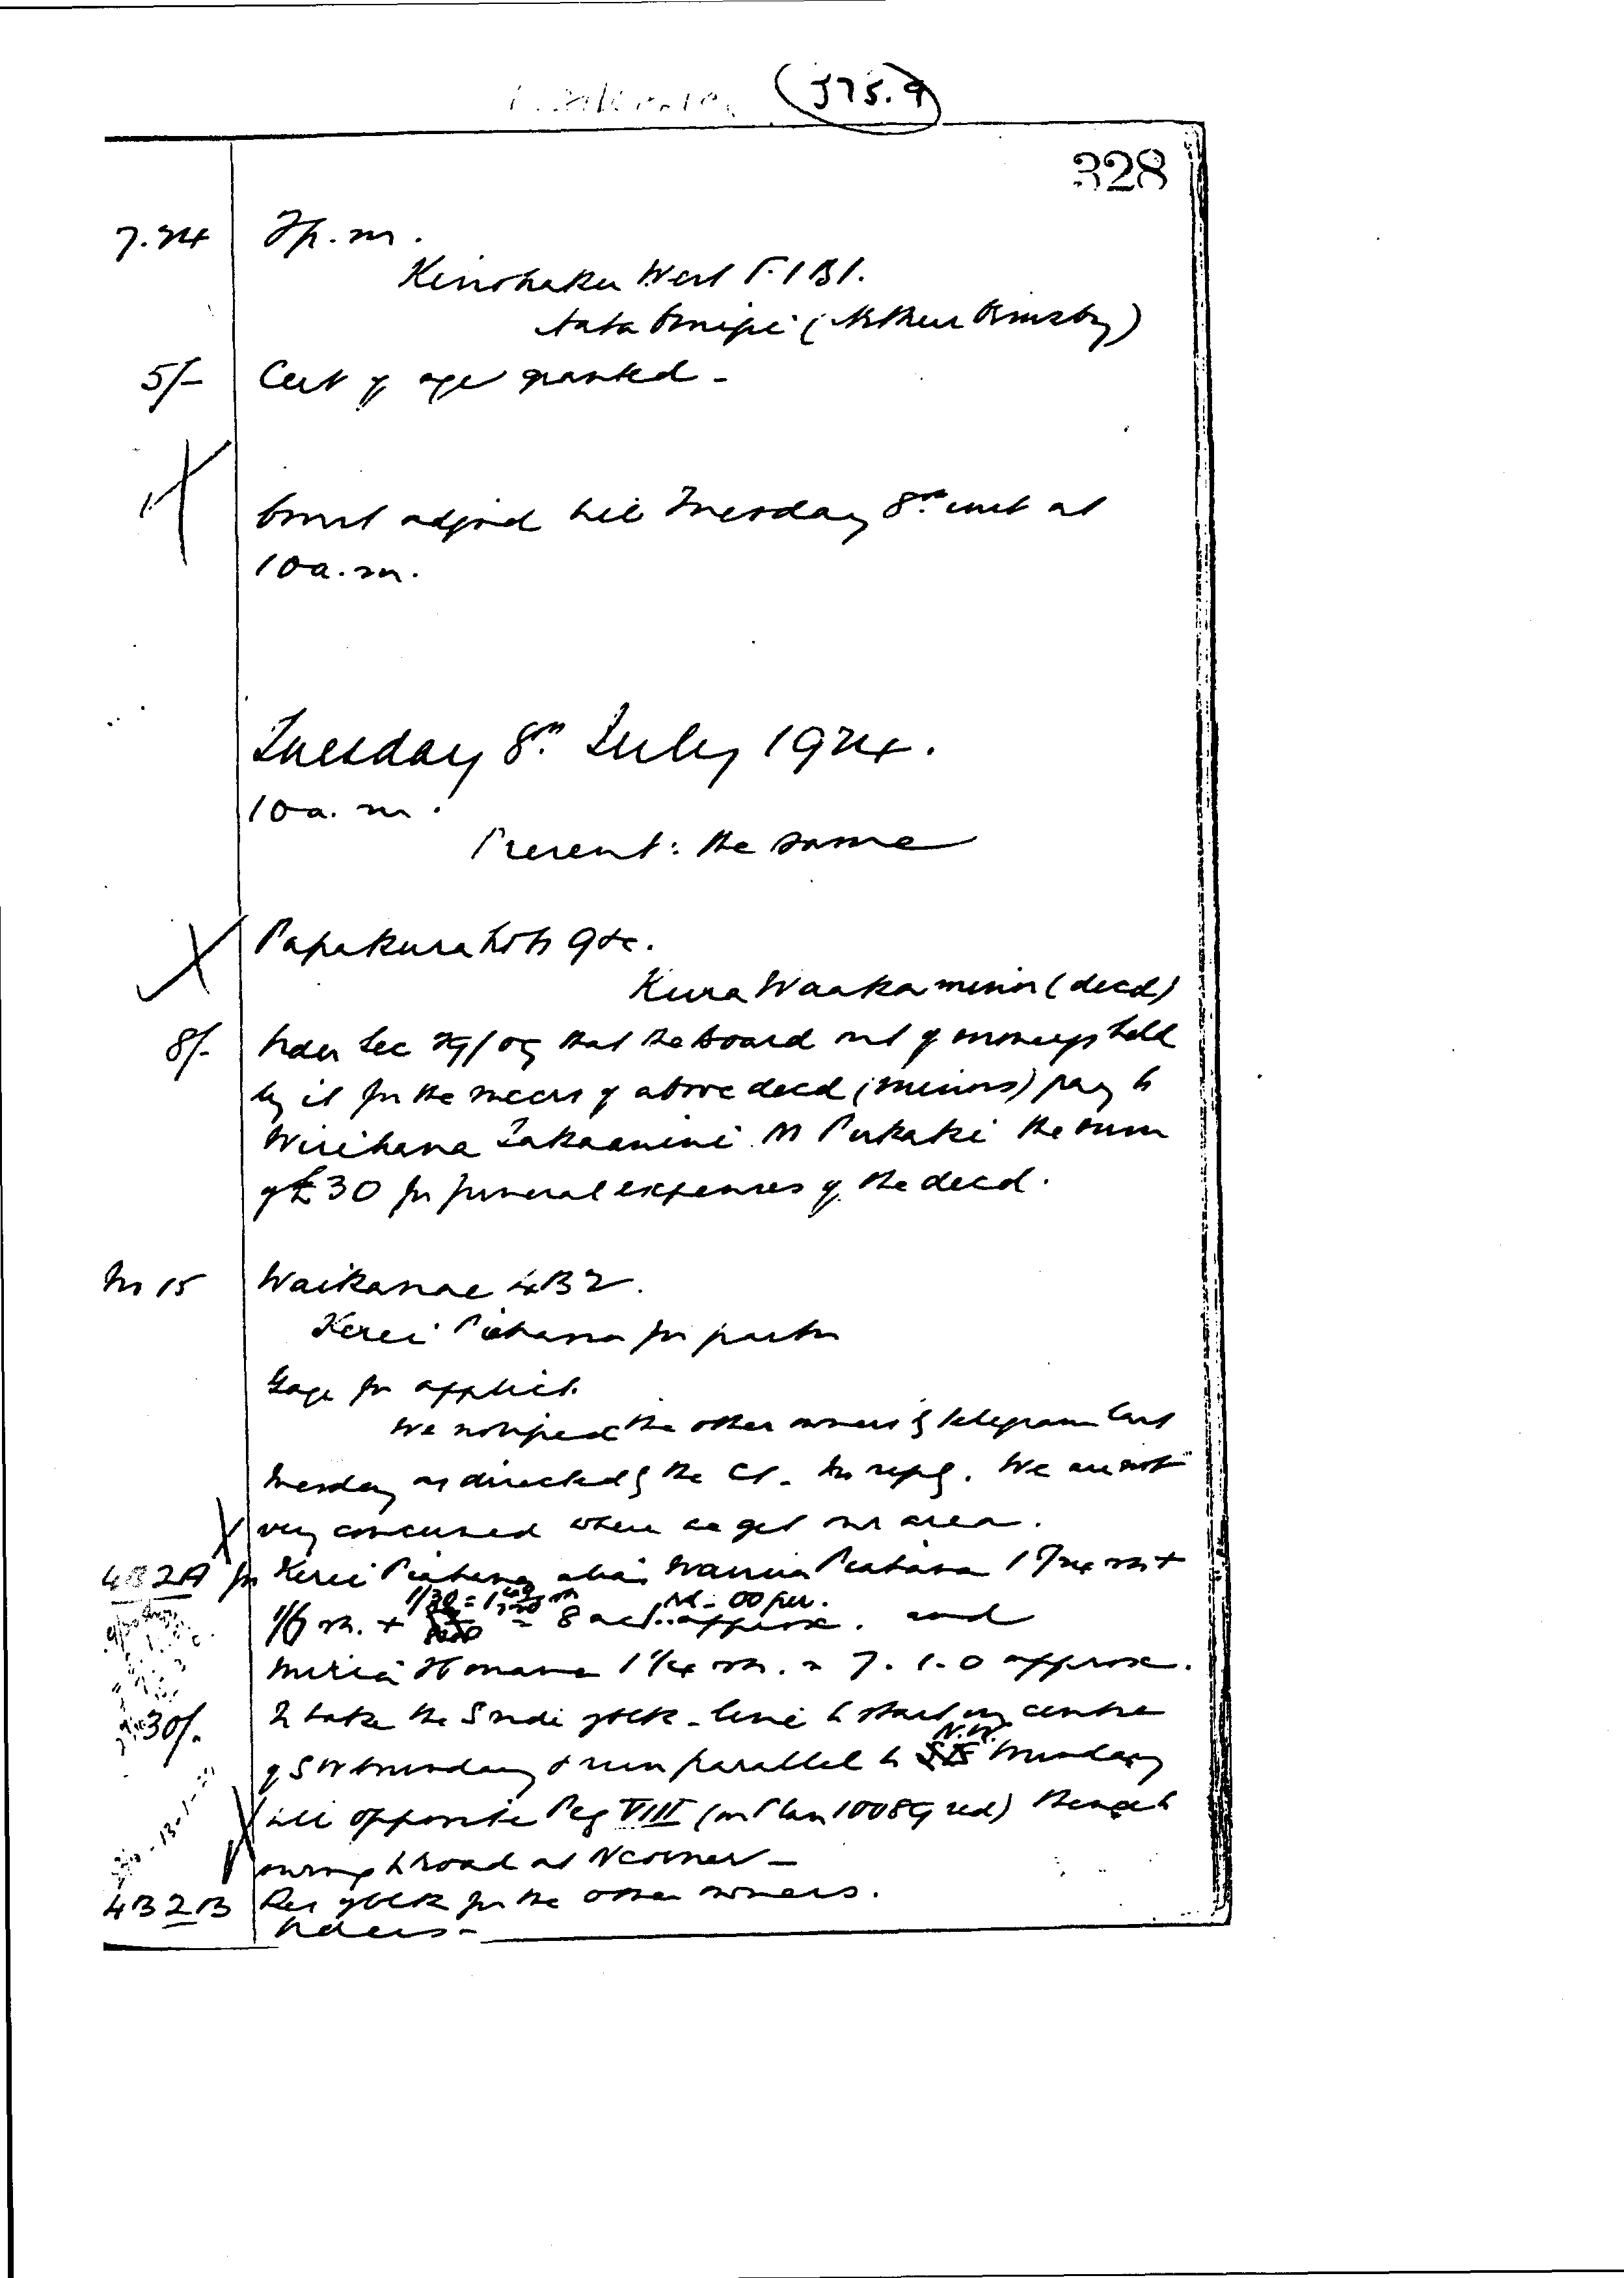 375.9
328
7.24 2p.m.
Kinohaku West F.1B1.
Tata Omipi (Arthur Ormsby)
5/- Cert of age granted -
Court adjnd till Tuesday 8th inst at
10a.m.
Tuesday 8th July 1924.
10a.m.
Present: the same
Papakura Lots 9 &c.
Kura Waaka minor (decd)
8/- Order Sec that the Board out of moneys held
by it for the succrs of above decd (minors) pay to
Wirihana Takaanini of Pukaki the sum
of £30 for funeral expenses of the decd.
No 15 Waikanae 4B2.
Kerei for partn
Gage for applict.
We notified the other owners by telegram last
Tuesday as directed by the Ct. No reply. We are not
very concerned where we get our area.
4B2A for Kerei alias 1 sh +
1/6 sh. + 8 ac approx. and
Miria 1 1/4 sh. = 7.1.0 approx.
30/- To take the S side of blk - line to start at centre
of SW boundary & run parallel to N.W. boundary
till opposite Peg VIII (on Plan 10089 red) thence to
to road at N corner -
4B2B Res of blk for the other owners.
Orders -